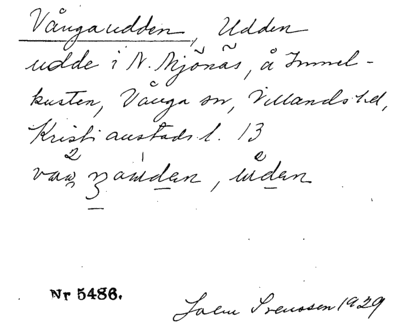 Vångaudden, Udden
udde i N. Mjönäs, å Immel-
kusten, Vånga sn, Villands hd,
Kristianstads l. 13
Nr 5486.
Svensson 1929